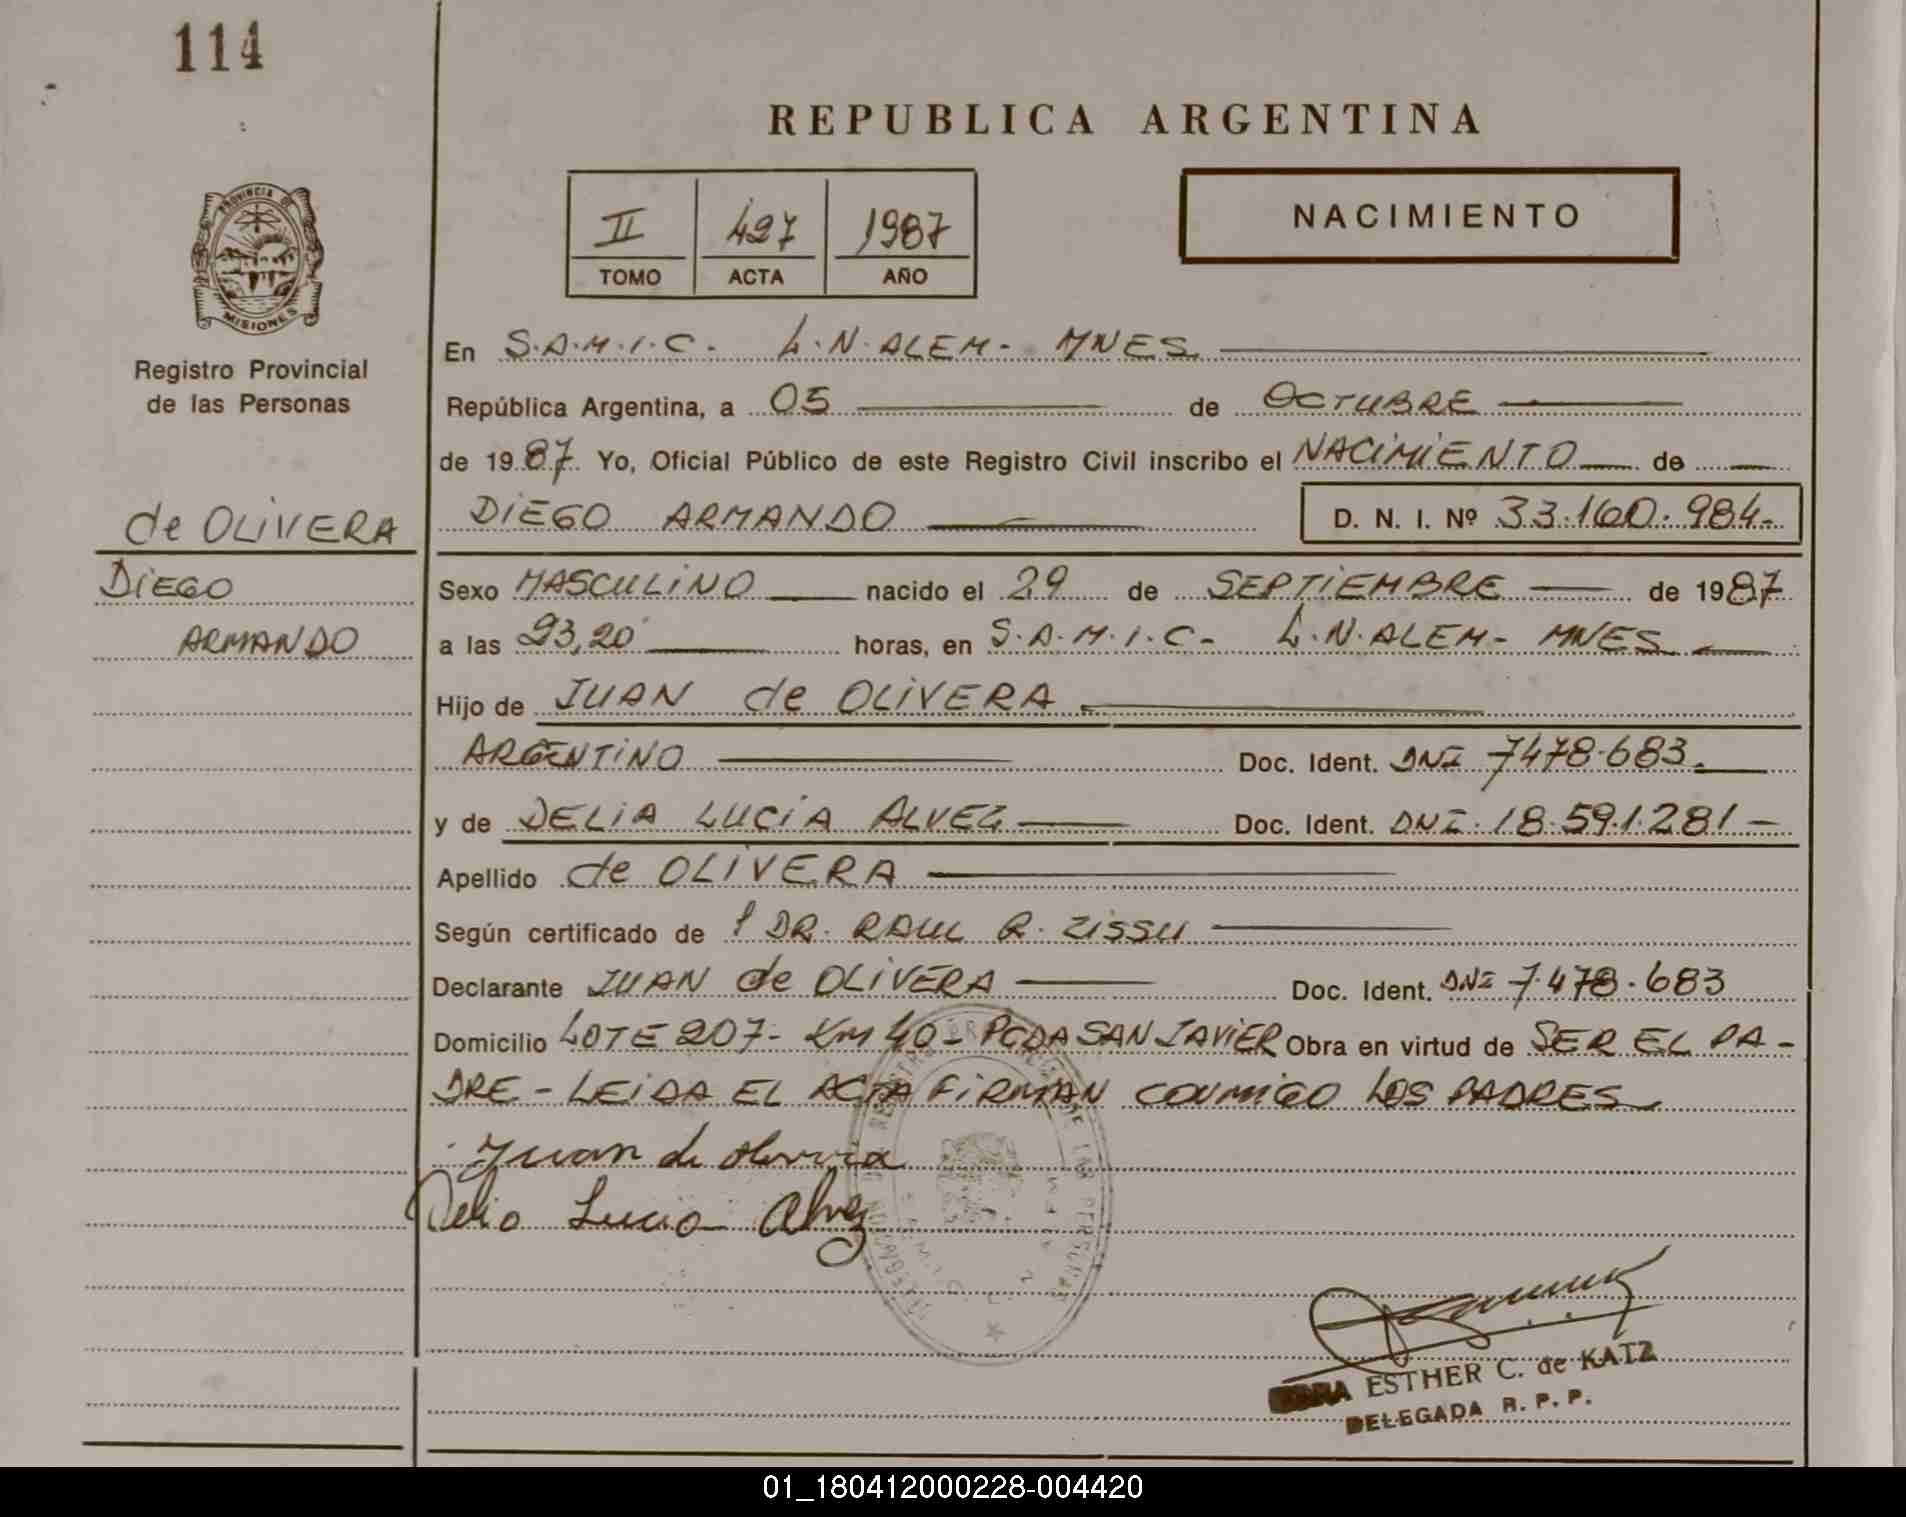 114
REPUBLICA ARGENTINA
II 427 1987
TOMO ACTA AÑO
NACIMIENTO
PROVINCIA DE
MISIONES
Registro Provincial
de las Personas
de OLIVERA
DIEGO
ARMANDO
En S.A.M.I.C. L.N.ALEM- MNES
República Argentina, a 05 de OCTUBRE
de 1987 Yo, Oficial Público de este Registro Civil inscribo el NACIMIENTO de
DIEGO ARMANDO D. N. I. Nº 33.160.984-
Sexo MASCULINO nacido el 29 de SEPTIEMBRE de 1987
a las 23,20 horas, en S.A.M.I.C- L.N.ALEM- MNES
Hijo de JUAN de OLIVERA
ARGENTINO Doc. Ident. DNI 7478.683.
y de DELIA LUCIA ALVEZ Doc. Ident. DNI.18.591.281-
Apellido de OLIVERA
Según certificado de DR. RAUL R. ZISSU
Declarante JUAN de OLIVERA Doc. Ident. DNI 7.478.683
Domicilio LOTE 207- KM 40- PCDA SAN JAVIER Obra en virtud de SER EL PA-
DRE - LEIDA EL ACTA FIRMAN CONMIGO LOS PADRES
Juan de Olivera
Delia Lucia Alvez
ESTHER C. de KATZ
DELEGADA R. P. P.
01_180412000228-004420